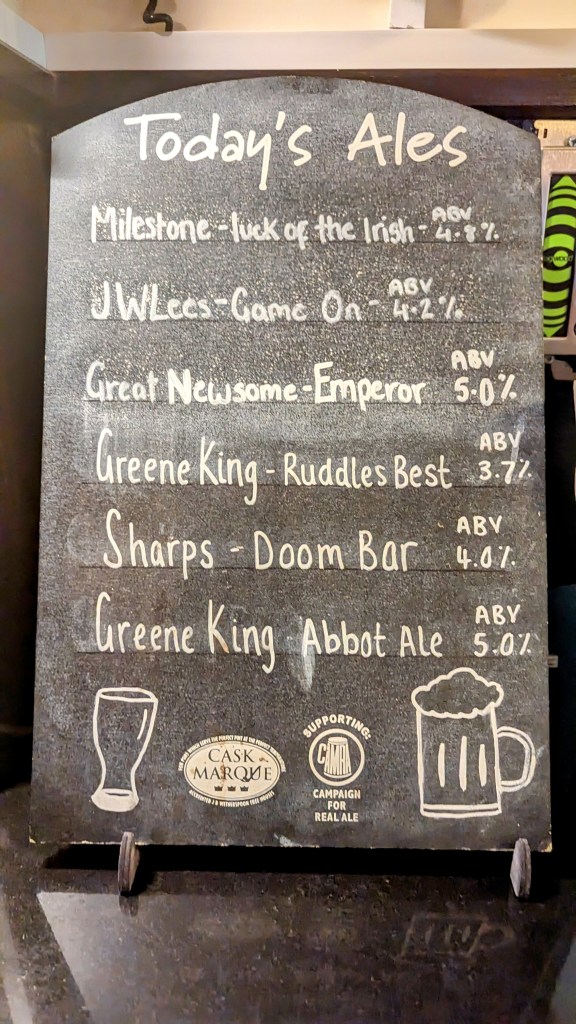 Today's Ales
Milestone - luck of the Irish - ABV 4.8%
JWLees - Game On - ABV 4.2%
Great Newsome - Emperor ABV 5.0%
Greene King - Ruddles Best ABV 3.7%
Sharps - Doom Bar ABV 4.0%
Greene King Abbot Ale ABV 5.0%
CASK
MARQUE
SUPPORTING:
CAMRA
CAMPAIGN
FOR
REAL ALE